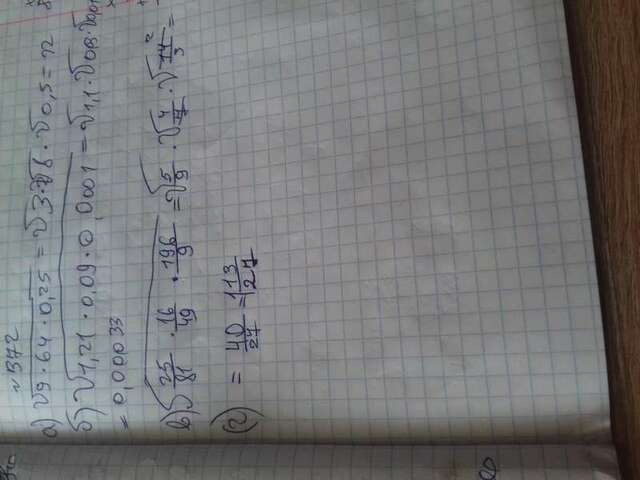 №372
а) √9·64·0,25 = √3·√8·√0,5 = 12
б) √1,21·0,09·0,0001 = √1,1·√0,3·√0,01
= 0,00033
в) √25/81·16/49·196/9 = √5/9·√4/7·√14/3 =
(2) = 40/27 = 1 13/27